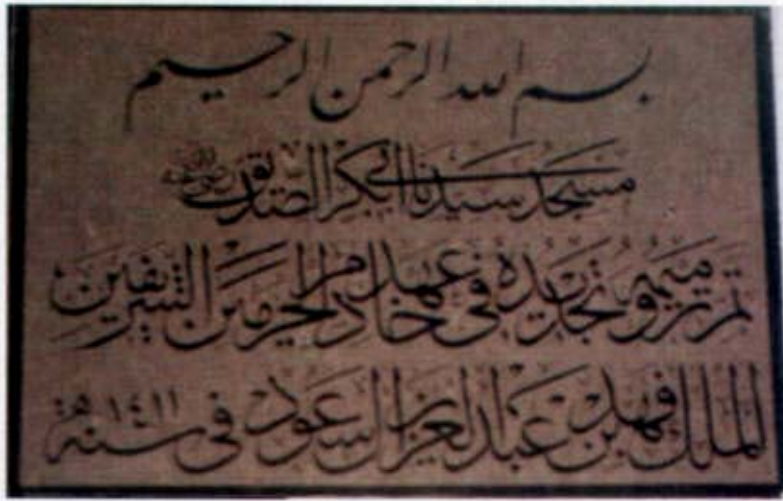 بسم الله الرحمن الرحيم
مسجد سيدنا أبي بكر الصديق رضي الله عنه
تم ترميمه وتجديده في عهد خادم الحرمين الشريفين
الملك فهد بن عبد العزيز آل سعود في سنة ١٤١١هـ